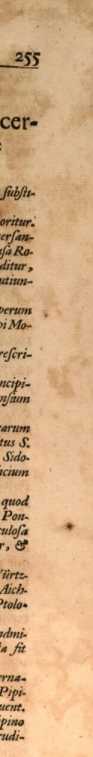 255
cer-
ſubſti-
oritur.
erſan-
ſa Ro-
ditur,
utiun-
perum
pi Mo-
reſcri-
ncipi-
nſium
earum
tus S.
Sido-
icium
quod
Pon-
culoſa
r, &
Würtz-
Aich-
Ptolo-
admi-
la ſit
erna-
Pipi-
uent,
ipino
rudi-